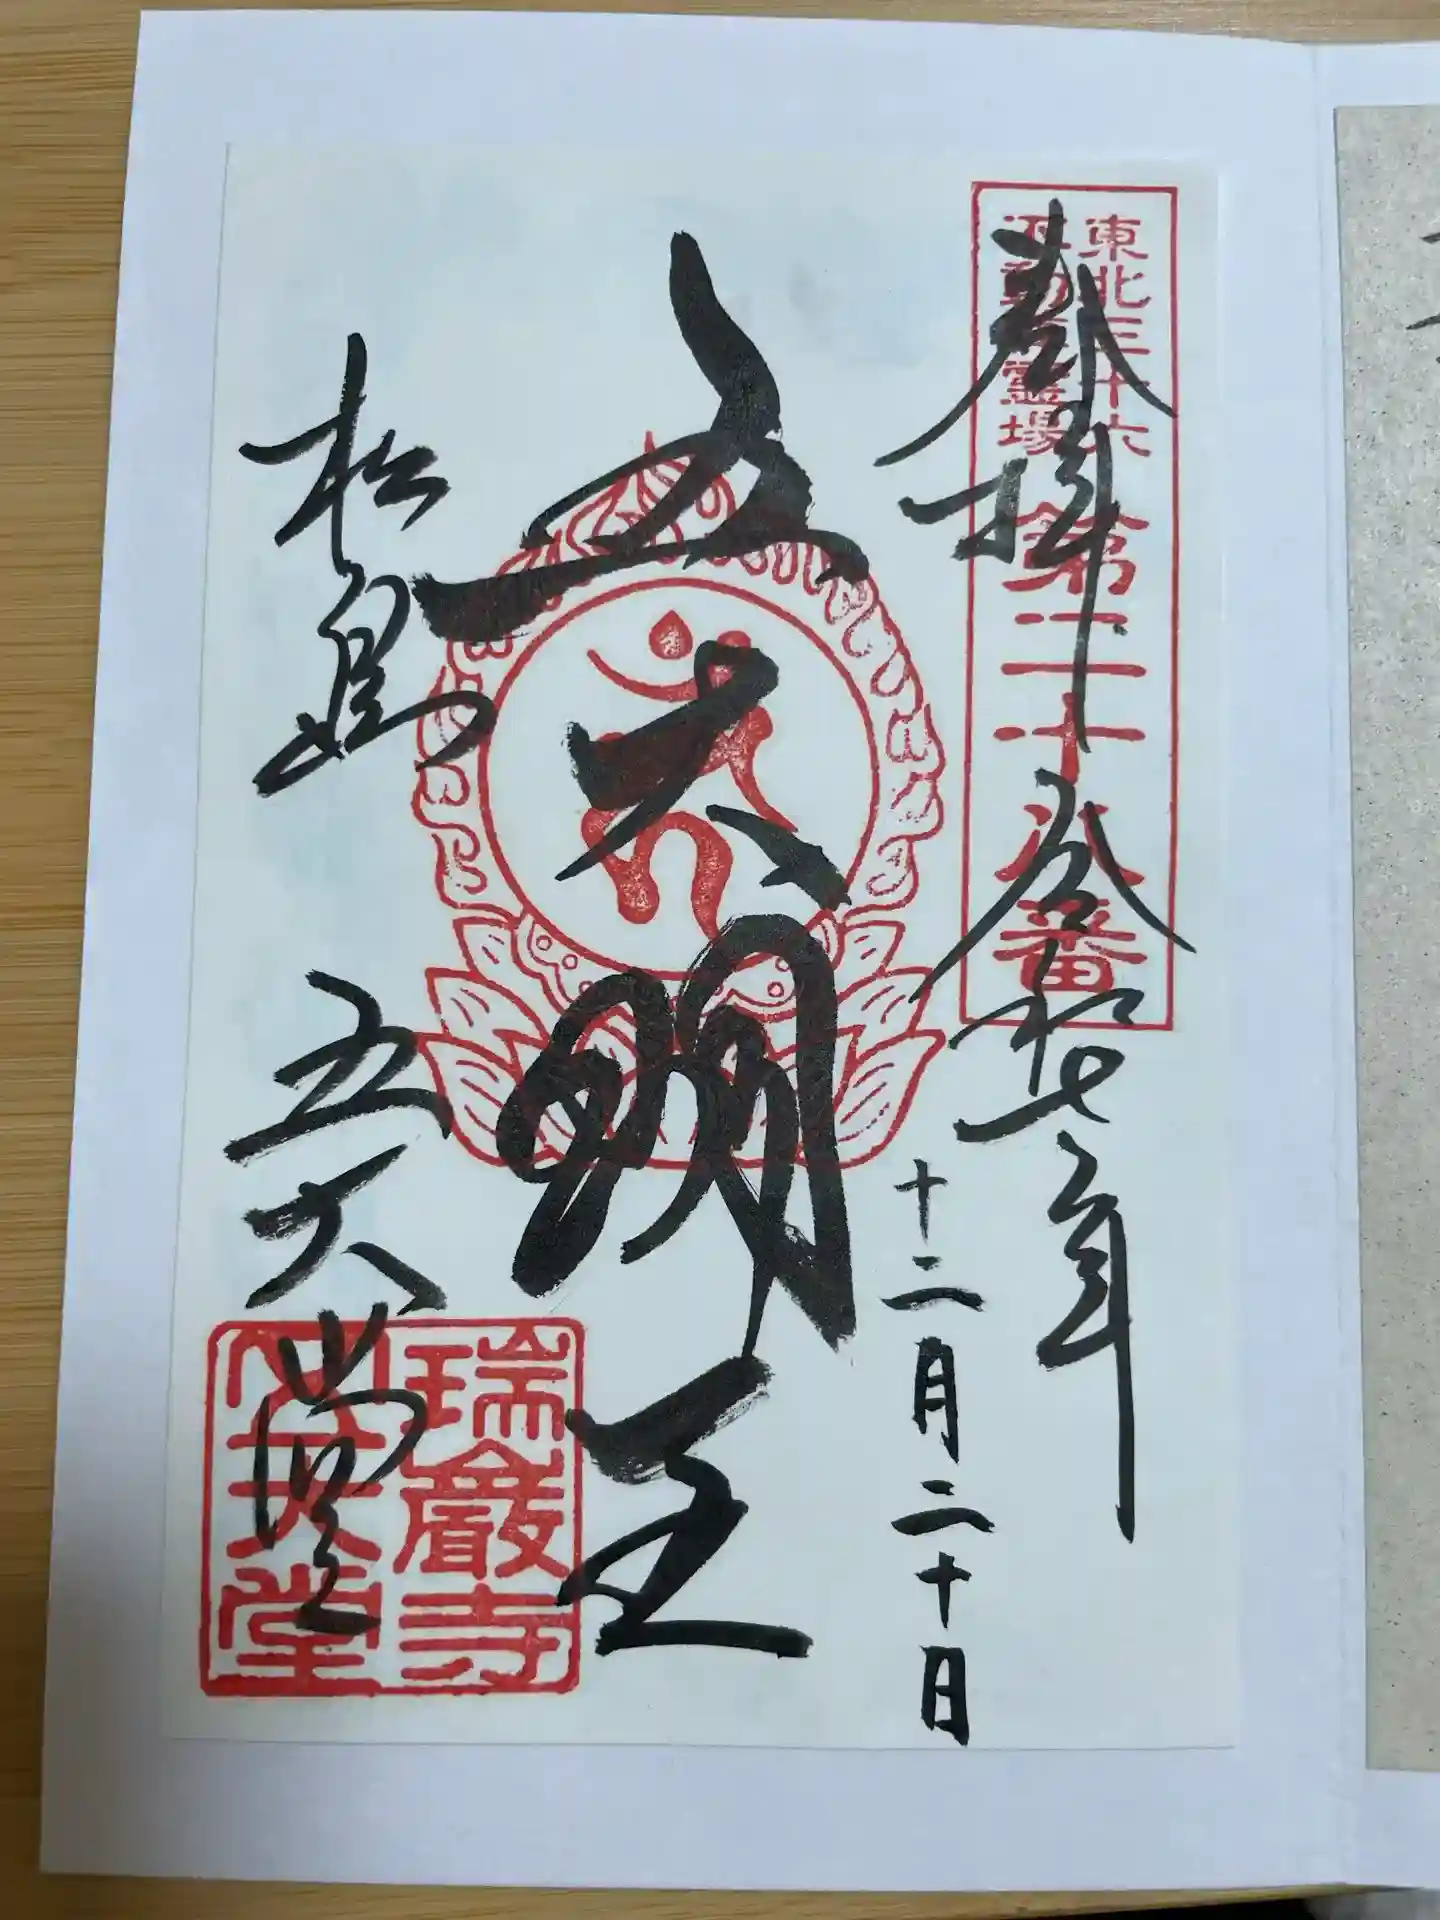 東北三十六
不動尊霊場
第二十八番
奉拝
令和七年
十二月二十日
五大明王
松島
五大堂
瑞巌寺
五大堂